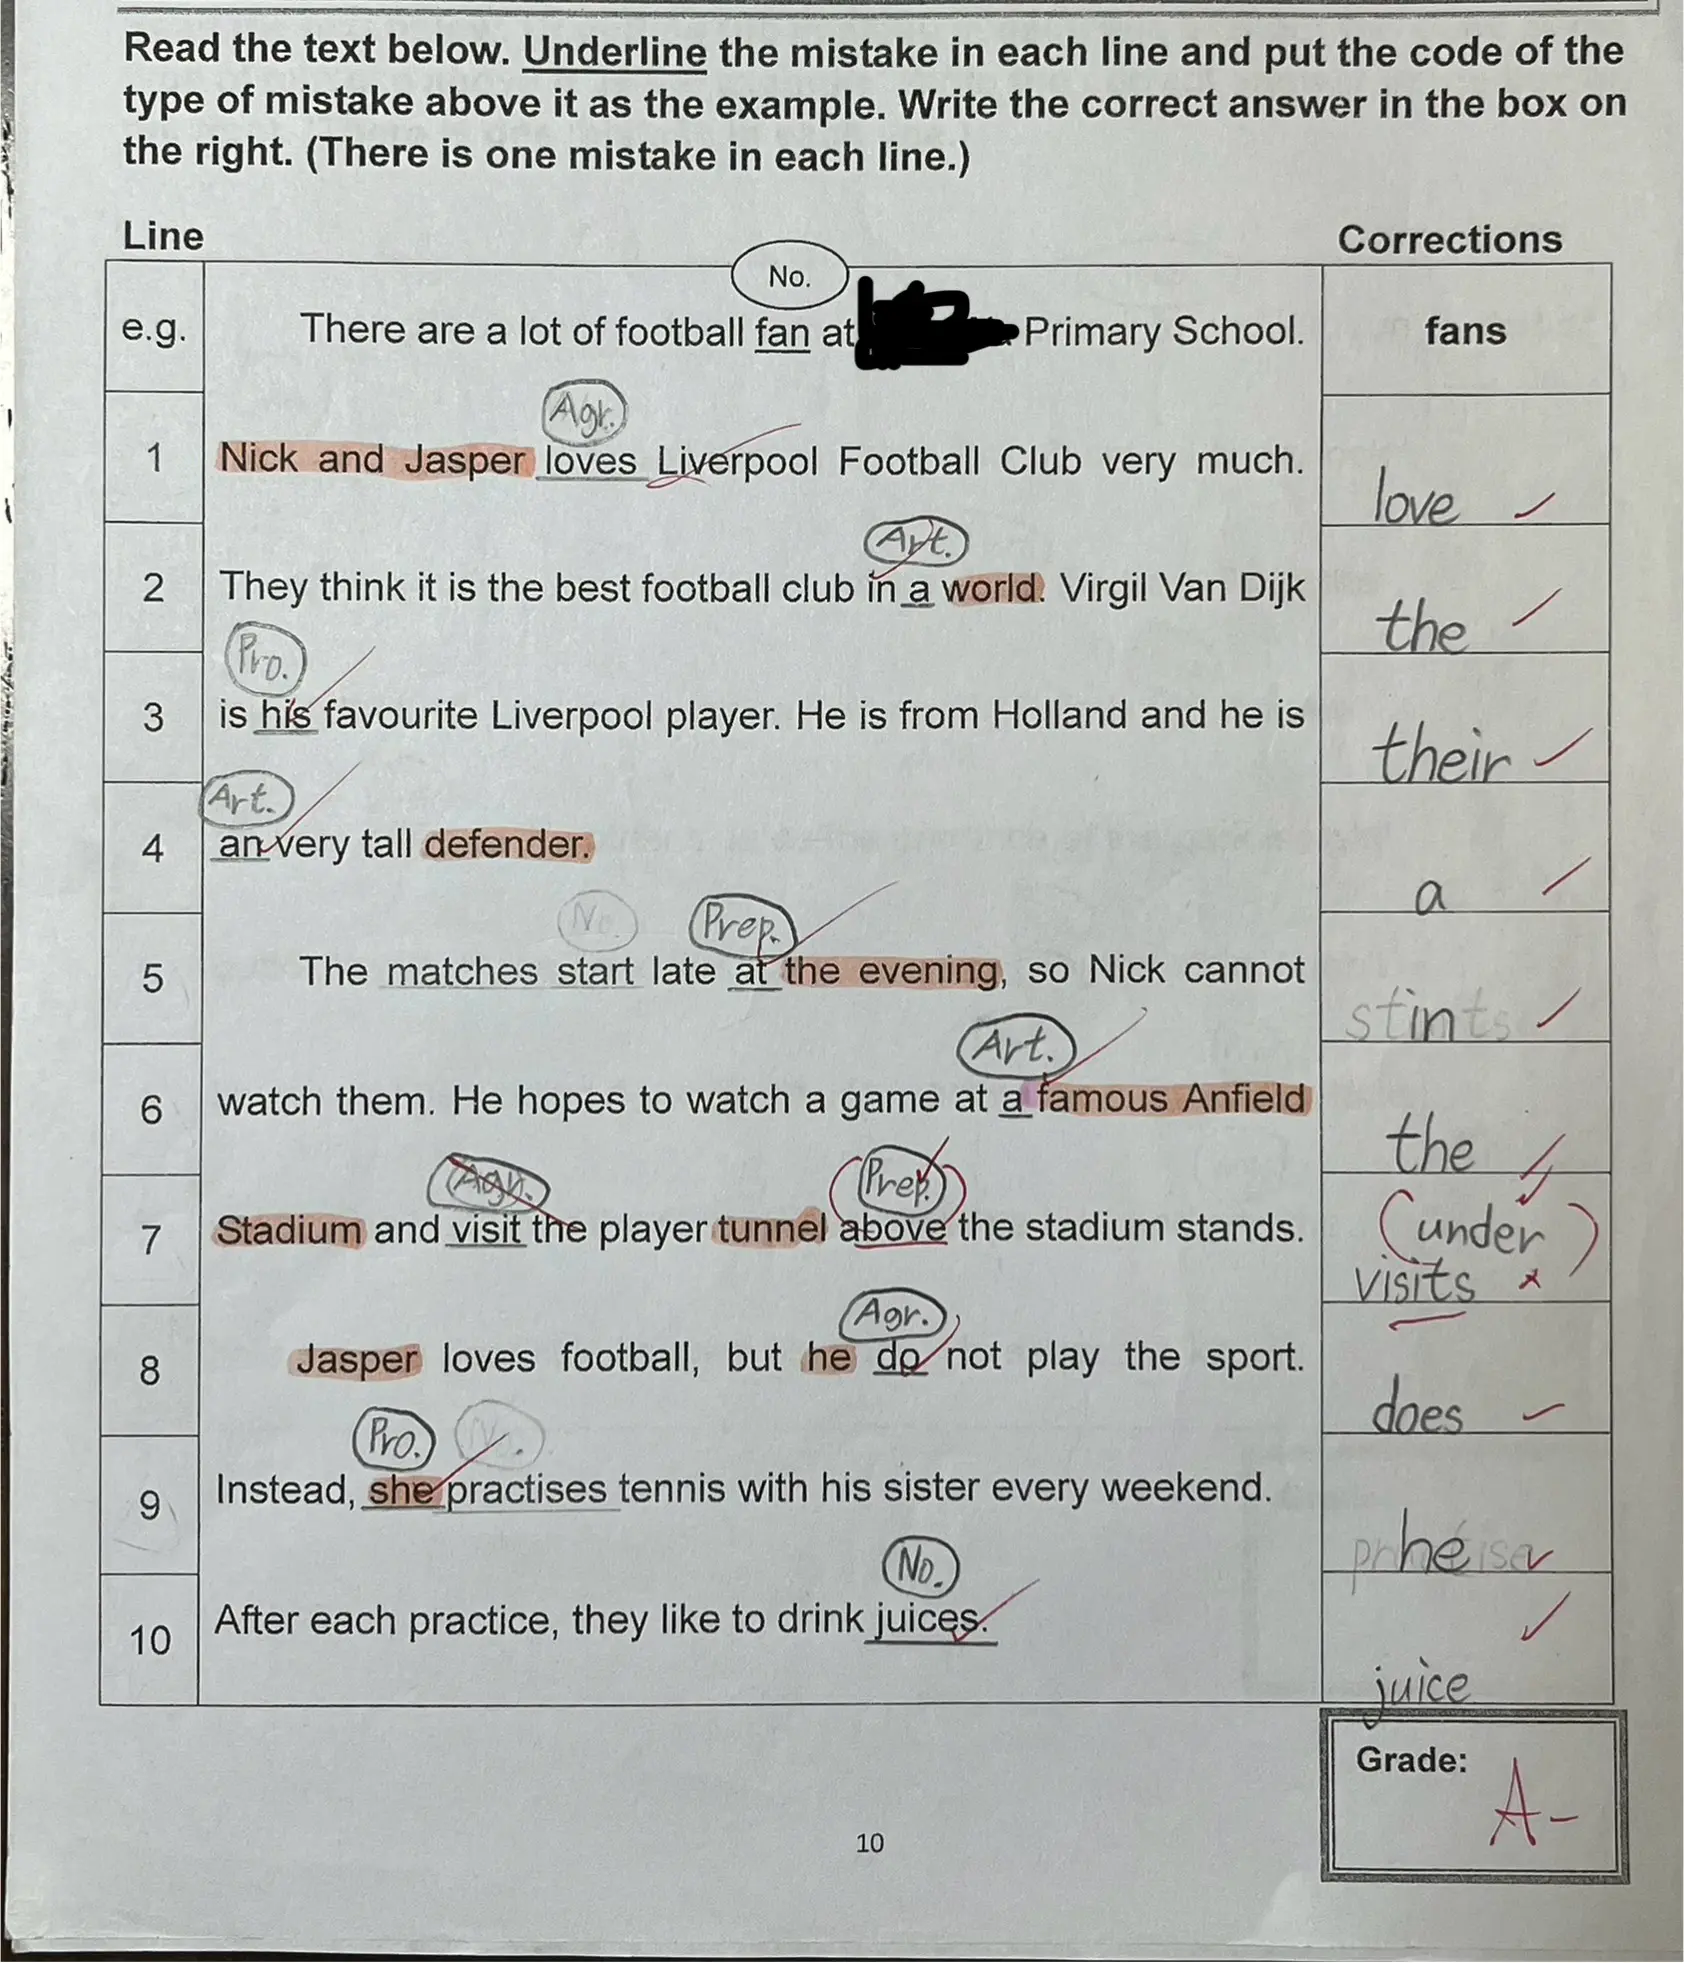 Read the text below. Underline the mistake in each line and put the code of the
type of mistake above it as the example. Write the correct answer in the box on
the right. (There is one mistake in each line.)
Line
Corrections
No.
e.g. There are a lot of football fan at Primary School. fans
Agr.
1 Nick and Jasper loves Liverpool Football Club very much. love
Art.
2 They think it is the best football club in a world. Virgil Van Dijk the
Pro.
3 is his favourite Liverpool player. He is from Holland and he is their
Art.
4 an very tall defender. a
No. Prep.
5 The matches start late at the evening, so Nick cannot in
Art.
6 watch them. He hopes to watch a game at a famous Anfield the
Agr. Prep.
7 Stadium and visit the player tunnel above the stadium stands. (under)
visits
Agr.
8 Jasper loves football, but he do not play the sport. does
Pro.
9 Instead, she practises tennis with his sister every weekend. he
No.
10 After each practice, they like to drink juices. juice
Grade: A-
10